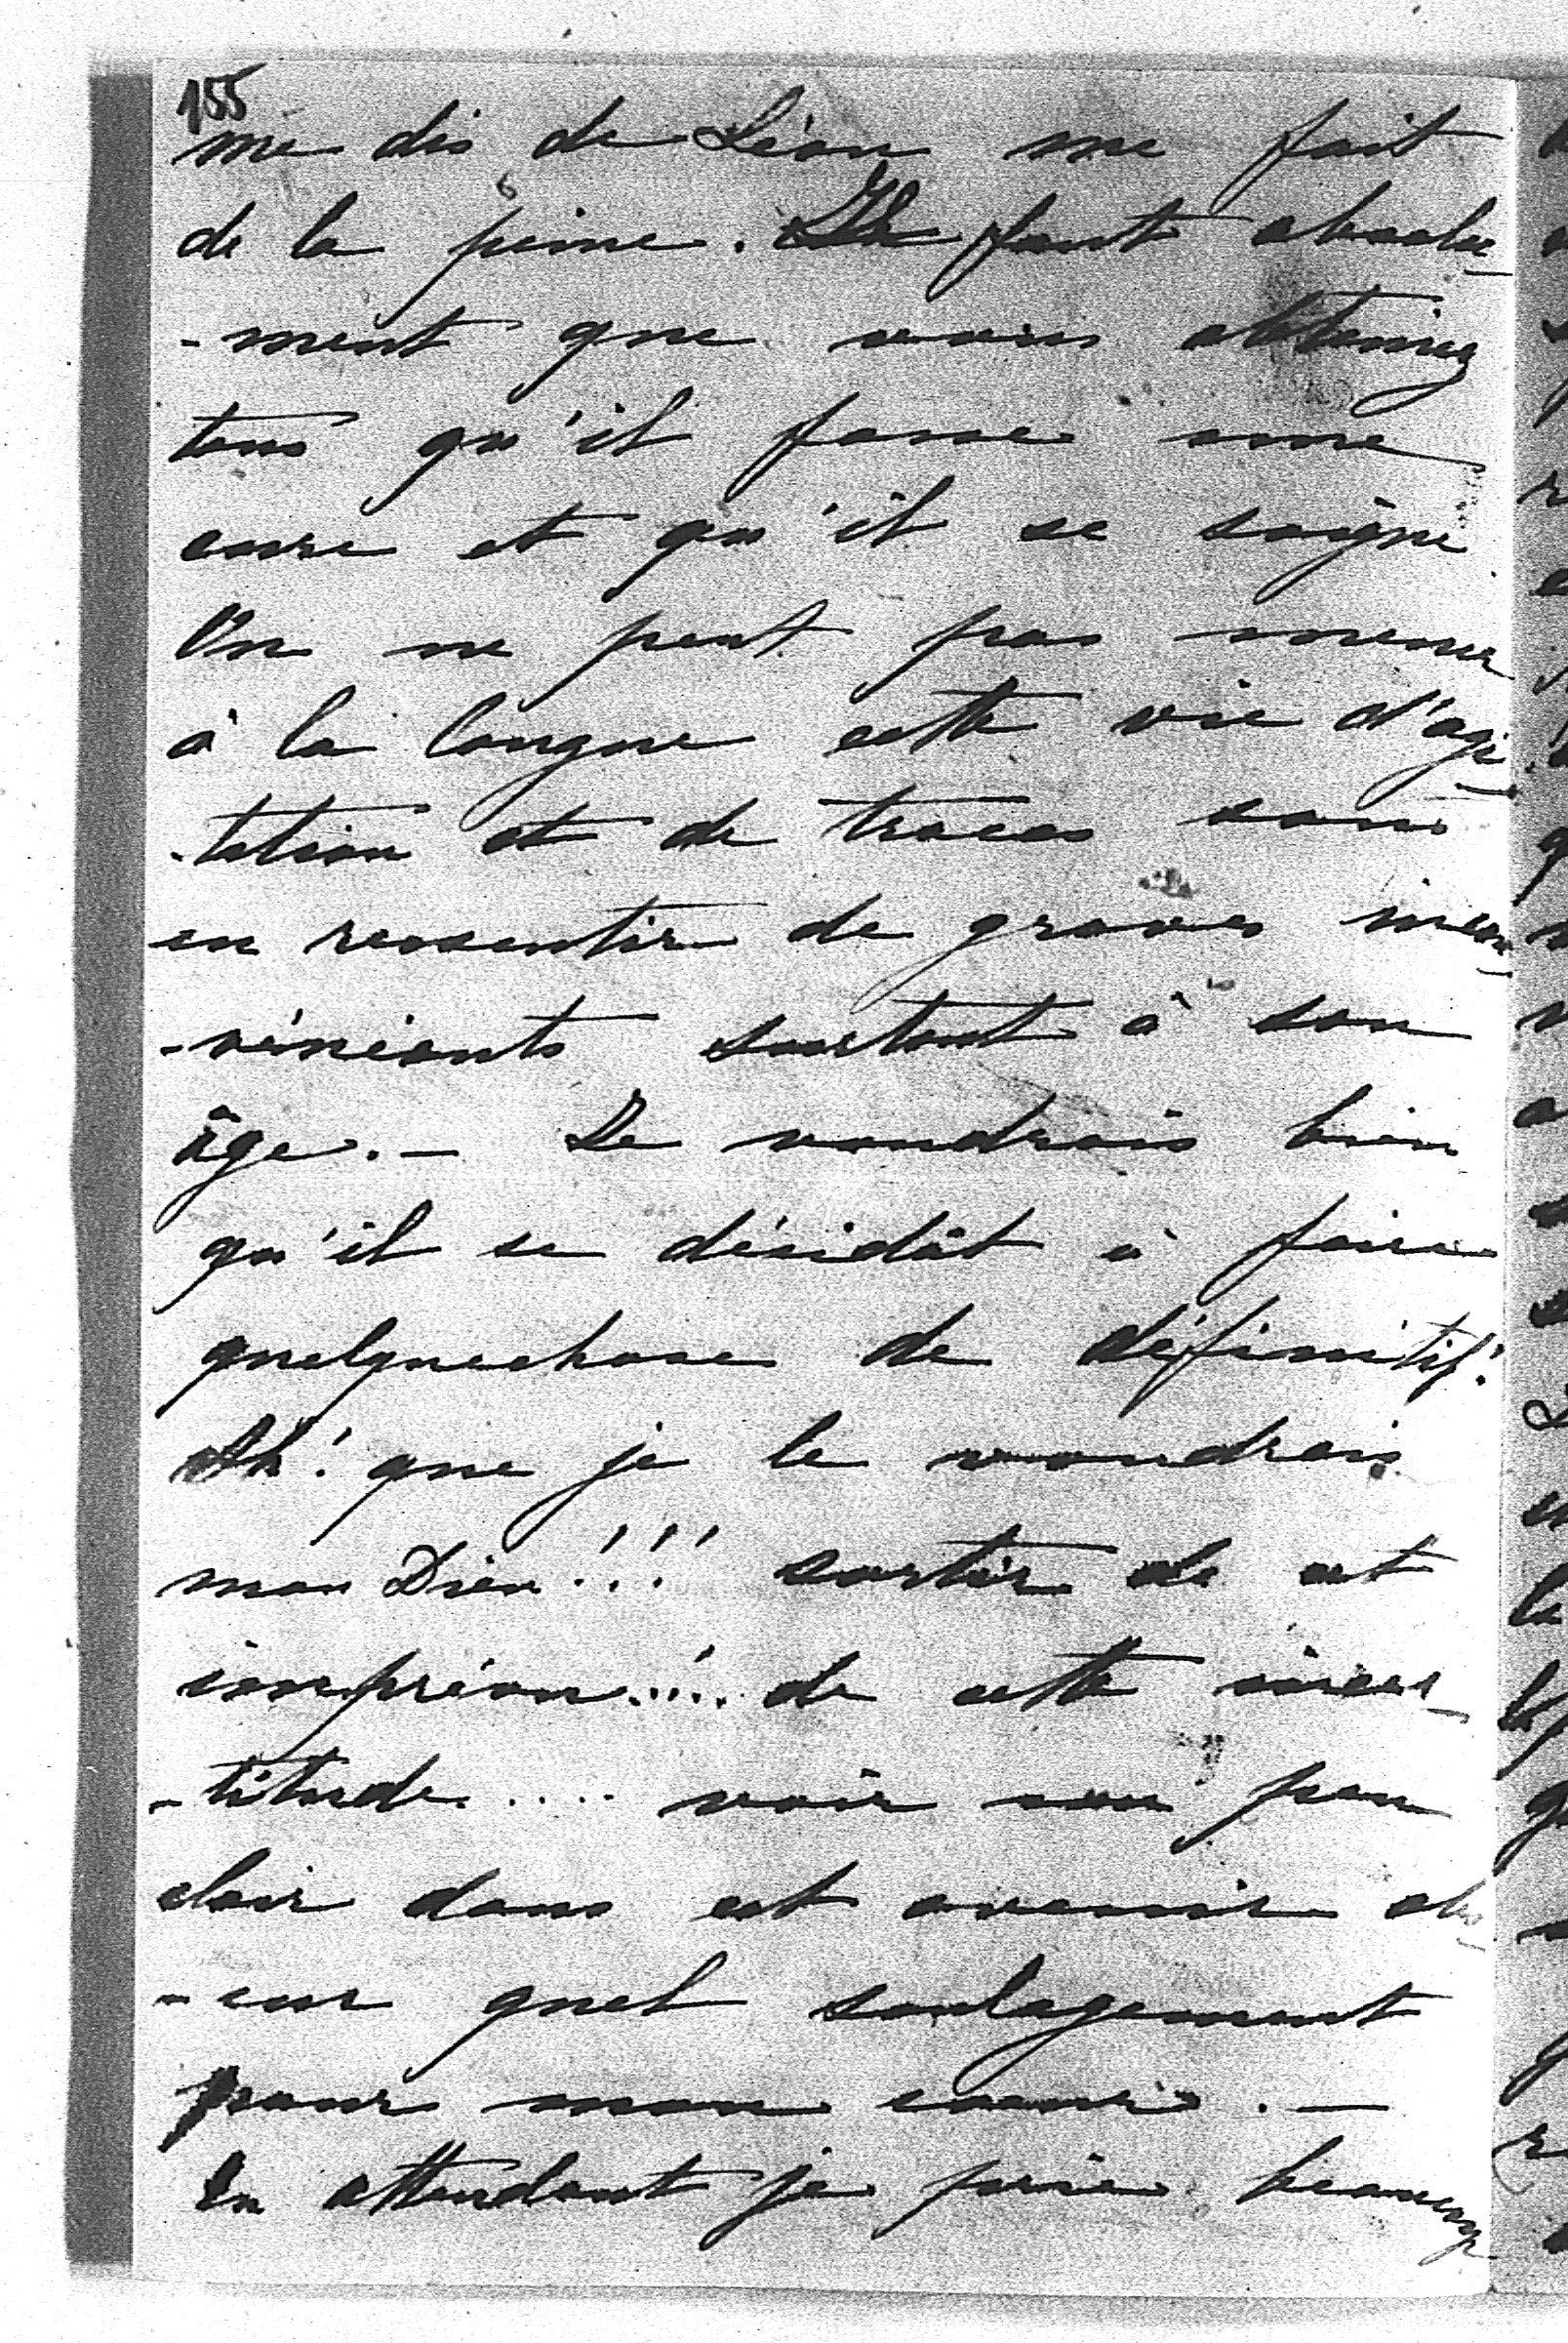 155
me dis de Léon me fait
de la peine. Il faut absolu-
-ment que vous obteniez
tous qu'il fasse une
cure et qu'il se soigne
On ne peut pas mener
à la longue cette vie d'agi-
-tation et de tracas sans
en ressentir de graves incon-
-vénients surtout à son
âge. - Je voudrais bien
qu'il se décidât à faire
quelquechose de définitif.
Ah! que je le voudrais
mon Dieu!!! sortir de cet
imprévu.... de cette incer-
-titude..... voir un peu
clair dans cet avenir obs-
-cur quel soulagement
pour mon coeur. -
En attendant je prie beaucoup